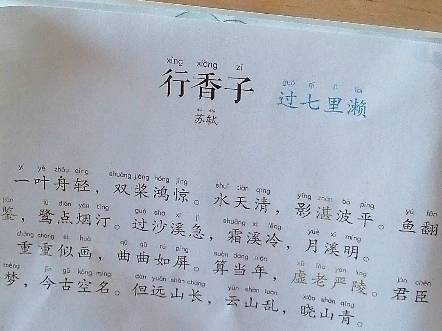 xíng xiāng zǐ
行香子 过七里濑
苏轼
yí yè zhōu qīng shuāng jiǎng hóng jīng shuǐ tiān qīng yǐng zhàn bō píng yú fān
一叶舟轻，双桨鸿惊。水天清，影湛波平。鱼翻
jiàn lù diǎn yān tīng guò shā xī jí
鉴，鹭点烟汀。过沙溪急，霜溪冷，月溪明。
chóng chóng sì huà qū qū rú píng suàn dāng nián xū lǎo yán líng jūn chén
重重似画，曲曲如屏。算当年，虚老严陵。君臣
mèng jīn gǔ kōng míng dàn yuǎn shān cháng yún shān luàn xiǎo shān qīng
梦，今古空名。但远山长，云山乱，晓山青。